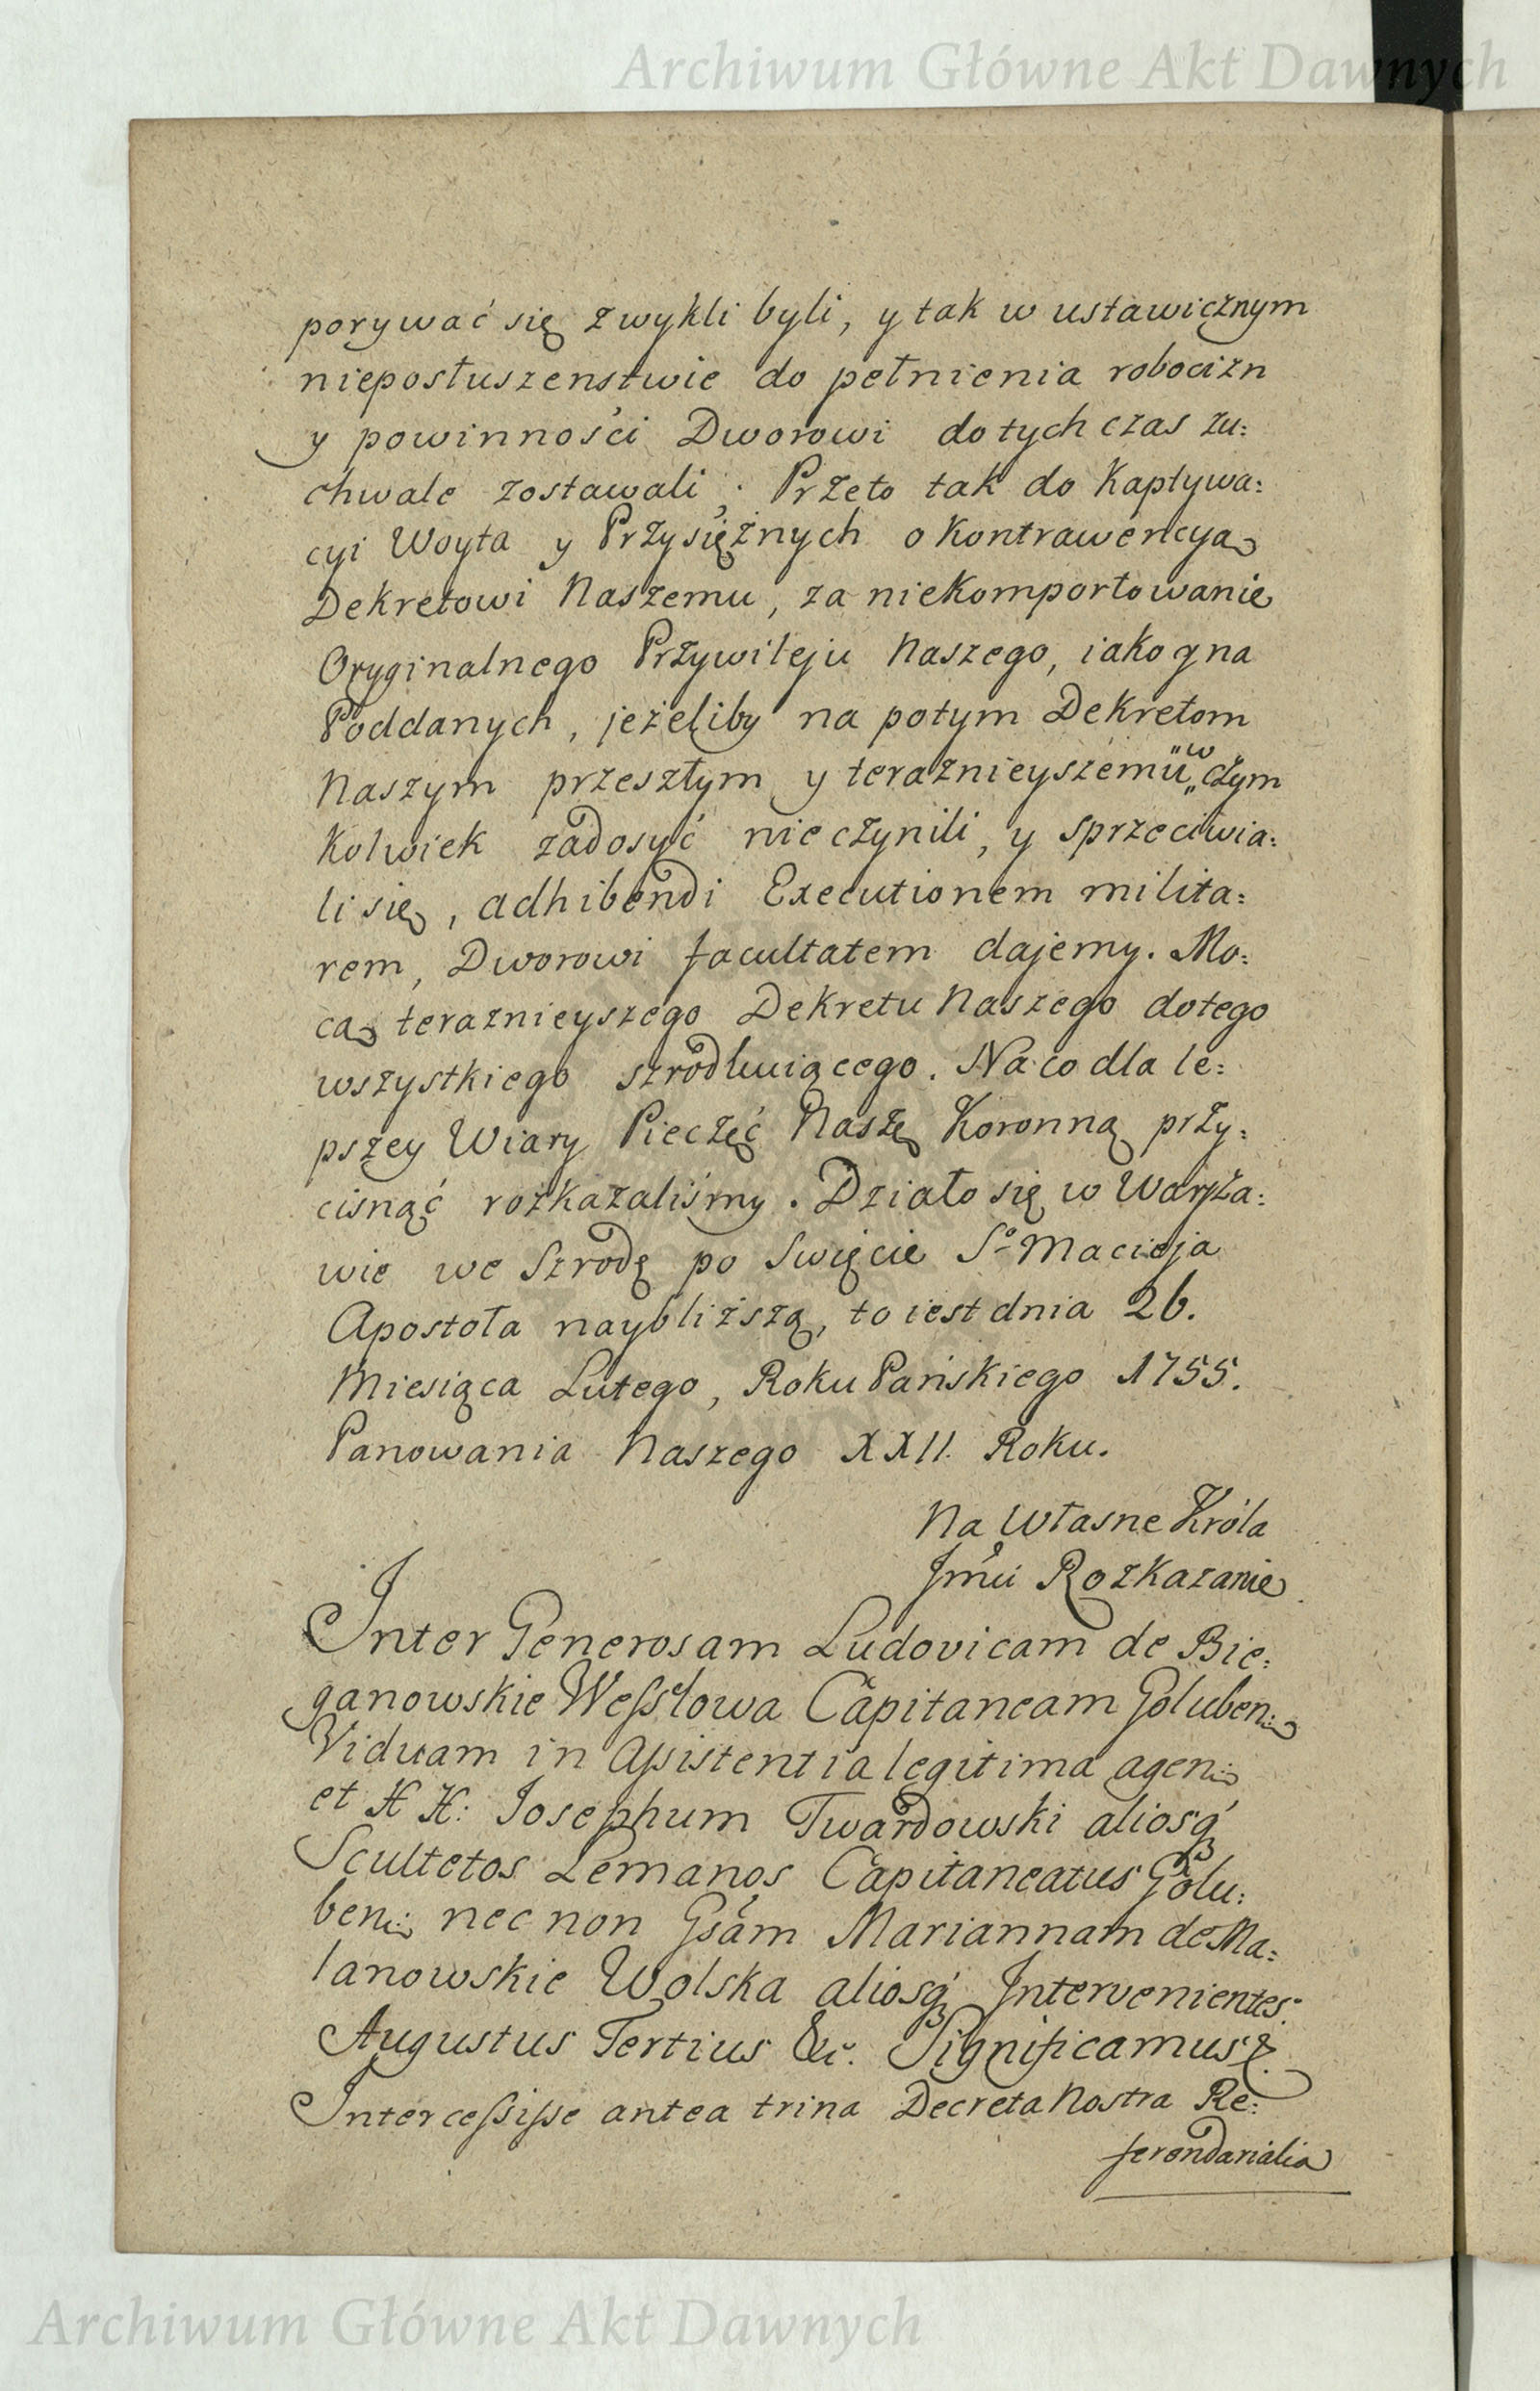 Archiwum Główne Akt Dawnych
porywać się zwykli byli, y tak w ustawicznym
nieposłuszenstwie do pełnienia robocizn
y powinności Dworowi dotychczas zu:
chwale zostawali; Przeto tak do Kaptywa:
cyi Woyta y Przysiężnych o Kontrawencyą
Dekretowi Naszemu, za niekomportowanie
Oryginalnego Przywileju Naszego, iako y na
Poddanych, jeżeliby na potym Dekretom
Naszym przeszłym y teraznieyszemu w czym
Kolwiek zadosyć nie czynili, y sprzeciwia:
li się, adhibendi Executionem milita:
rem, Dworowi facultatem dajemy. Mo:
cą teraznieyszego Dekretu Naszego do tego
wszystkiego szrodłuiącego. Na co dla le:
pszey Wiary Pieczęć Naszę Koronną przy:
cisnąć rozkazaliśmy. Działo się w Warsza:
wie we Szrodę po Swięcie Sº Macieja
Apostoła naybliższą, to iest dnia 26.
Miesiąca Lutego, Roku Pańskiego 1755.
Panowania Naszego XXII. Roku.
Na Własne Króla
Jmći Rozkazanie
Inter Generosam Ludovicam de Bie:
ganowskie Wessłowa Capitaneam Goluben:
Viduam in Assistentia legitima agen:
et HH: Josephum Twardowski aliosq́
Scultetos Lemanos Capitaneatus Golu:
ben: nec non Gsam Mariannam de Ma:
lanowskie Wolska aliosq́ Intervenientes.
Augustus Tertius &c. Significamus &.
Intercessisse antea trina Decreta Nostra Re:
ferendarialia
Archiwum Główne Akt Dawnych